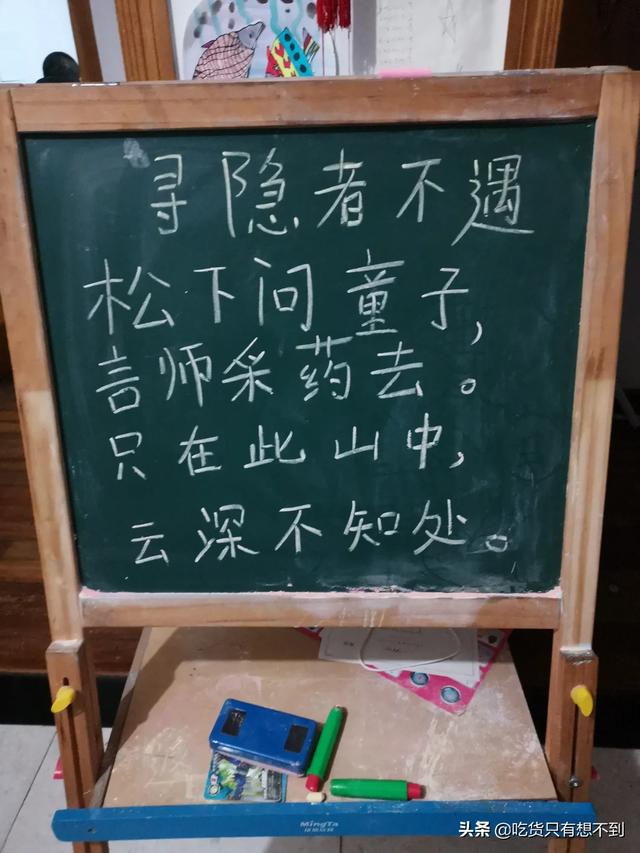 寻隐者不遇
松下问童子，
言师采药去。
只在此山中，
云深不知处。
MingTa
头条 @吃货只有想不到